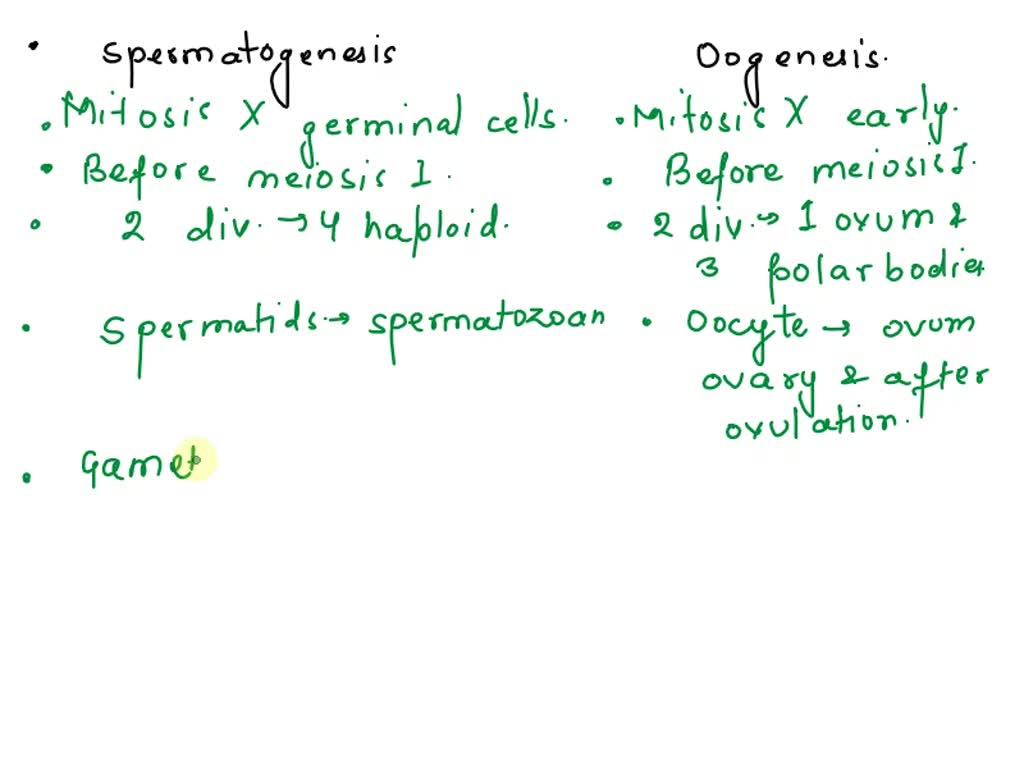 • Spermatogenesis Oogenesis.
• Mitosis X germinal cells. • Mitosis X early.
• Before meiosis I. • Before meiosis I.
• 2 div. → 4 haploid. • 2 div. → 1 ovum &
3 polar bodies
• Spermatids. → spermatozoan • Oocyte → ovum
ovary & after
ovulation.
• Gamet